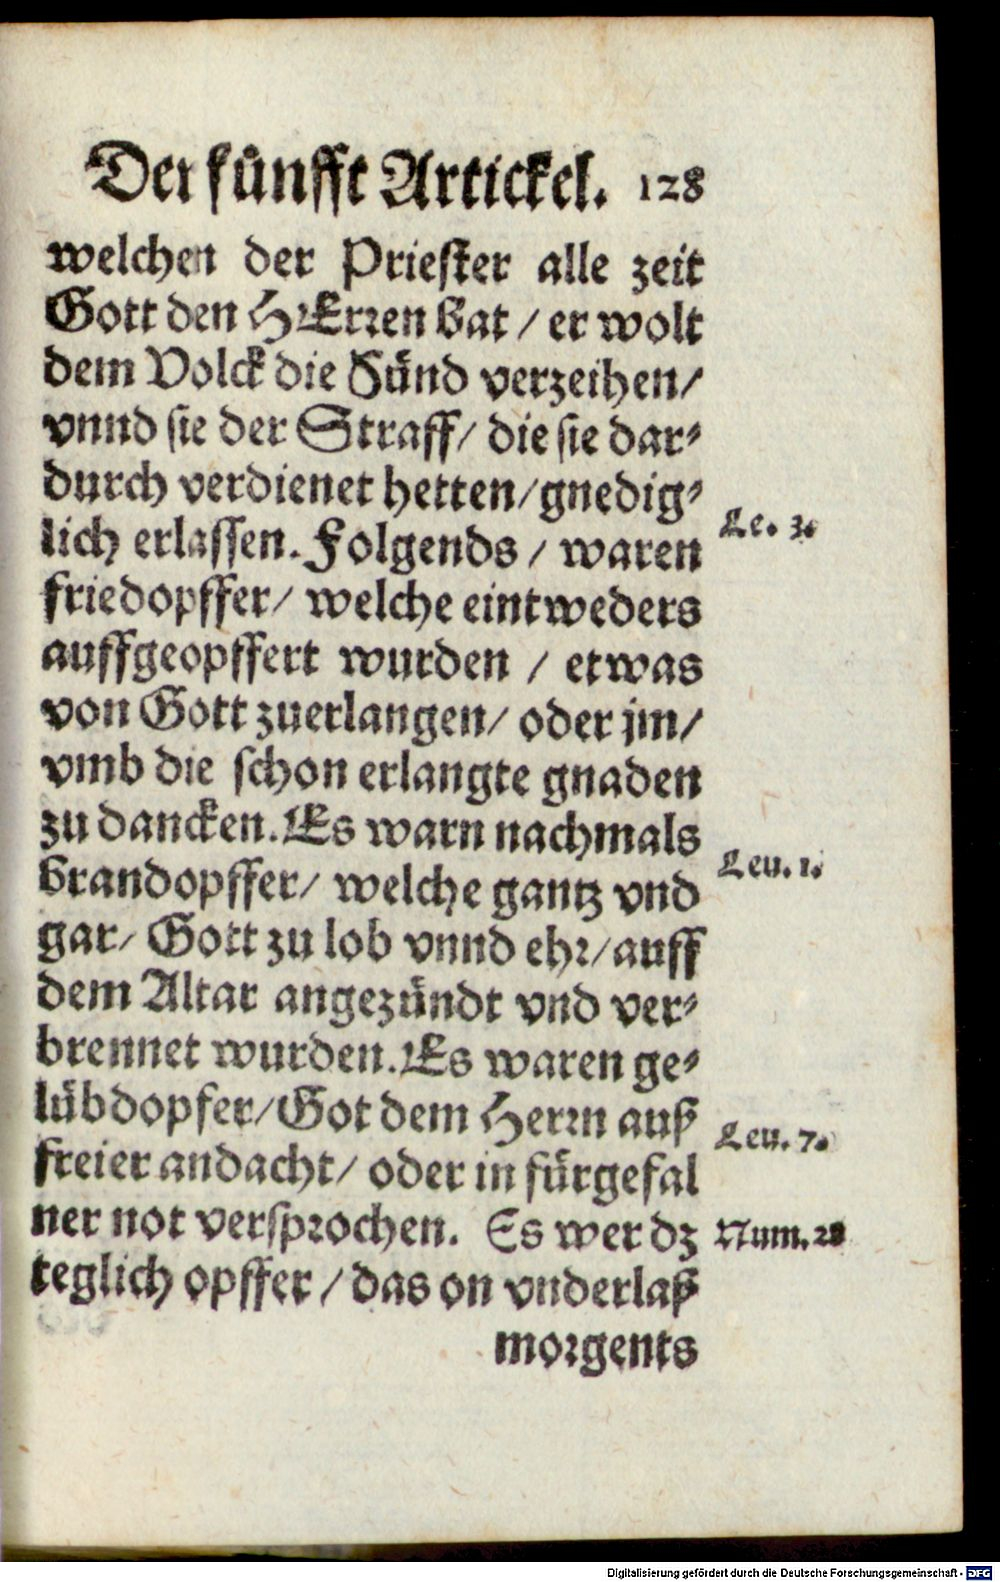 Der fuͤnfft Artickel. 128
welchen der Priester alle zeit
Gott den HErren bat / er wolt
dem Volck die Sünd verzeihen /
vnnd sie der Straff / die sie dar⸗
durch verdienet hetten / gnedig⸗
lich erlassen. Folgends / waren
Le. 3.
friedopffer / welche eintweders
auffgeopffert wurden / etwas
von Gott zuerlangen / oder jm /
vmb die schon erlangte gnaden
zu dancken. Es warn nachmals
brandopffer / welche gantz vnd
Leu. 1.
gar / Gott zu lob vnnd ehr / auff
dem Altar angezündt vnd ver⸗
brennet wurden. Es waren ge⸗
lübdopfer / Got dem Herrn auß
Leu. 7.
freier andacht / oder in fürgefal
ner not versprochen. Es wer dz
Num. 28
teglich opffer / das on vnderlaß
morgents
Digitalisierung gefördert durch die Deutsche Forschungsgemeinschaft - DFG